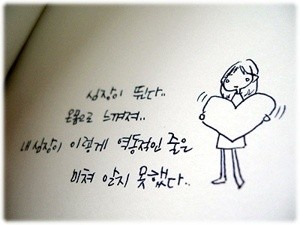 심장이 뛴다..
온몸으로 느껴져..
내심장이 이렇게 역동적인 줄은
미쳐 알지 못했다..